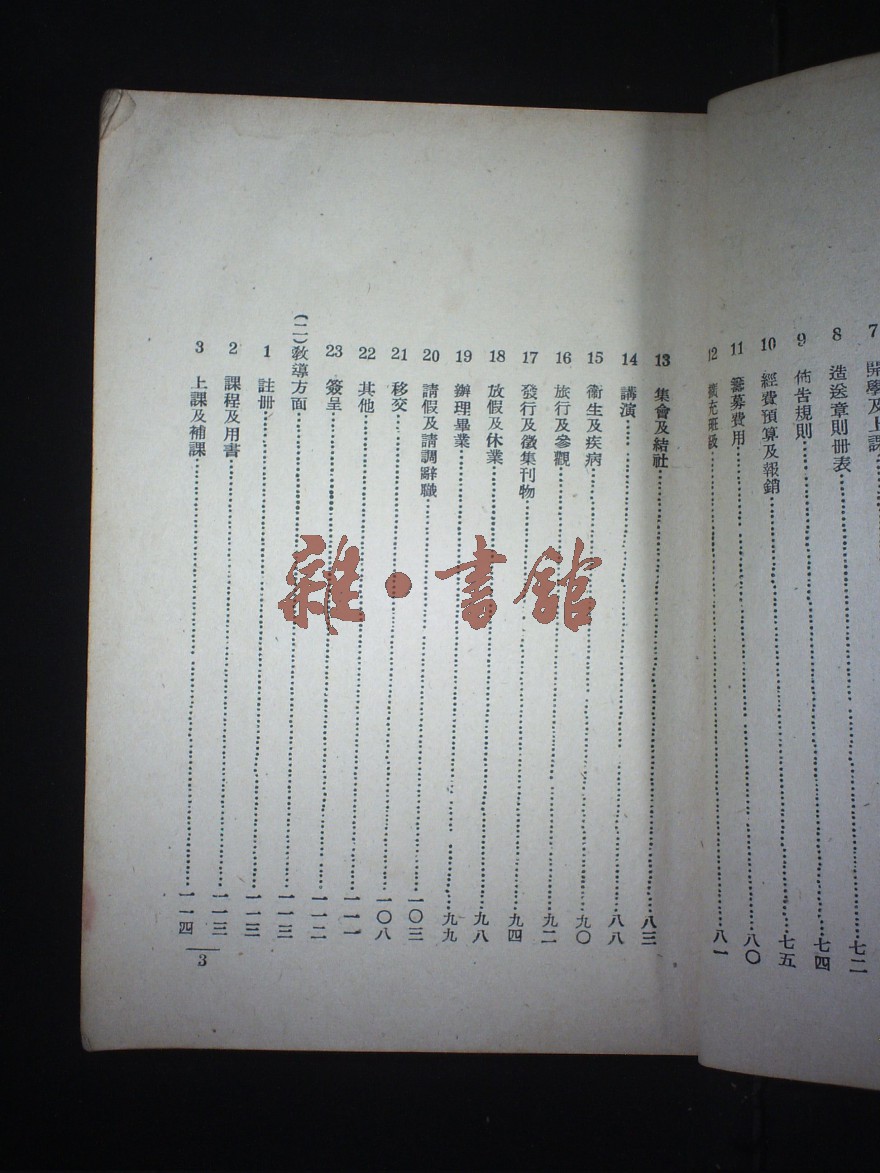 7 開學及上課
8 造送章則冊表……七二
9 佈告規則……七四
10 經費預算及報銷……七五
11 籌募費用……八〇
12 擴充班級……八一
13 集會及結社……八三
14 講演……八八
15 衞生及疾病……九〇
16 旅行及參觀……九二
17 發行及徵集刊物……九四
18 放假及休業……九八
19 辦理畢業……九九
20 請假及請調辭職……一〇三
21 移交……一〇八
22 其他……一一一
23 簽呈……一一二
(二)教導方面……一一三
1 註冊……一一三
2 課程及用書……一一三
3 上課及補課……一一四
3
雜·書館